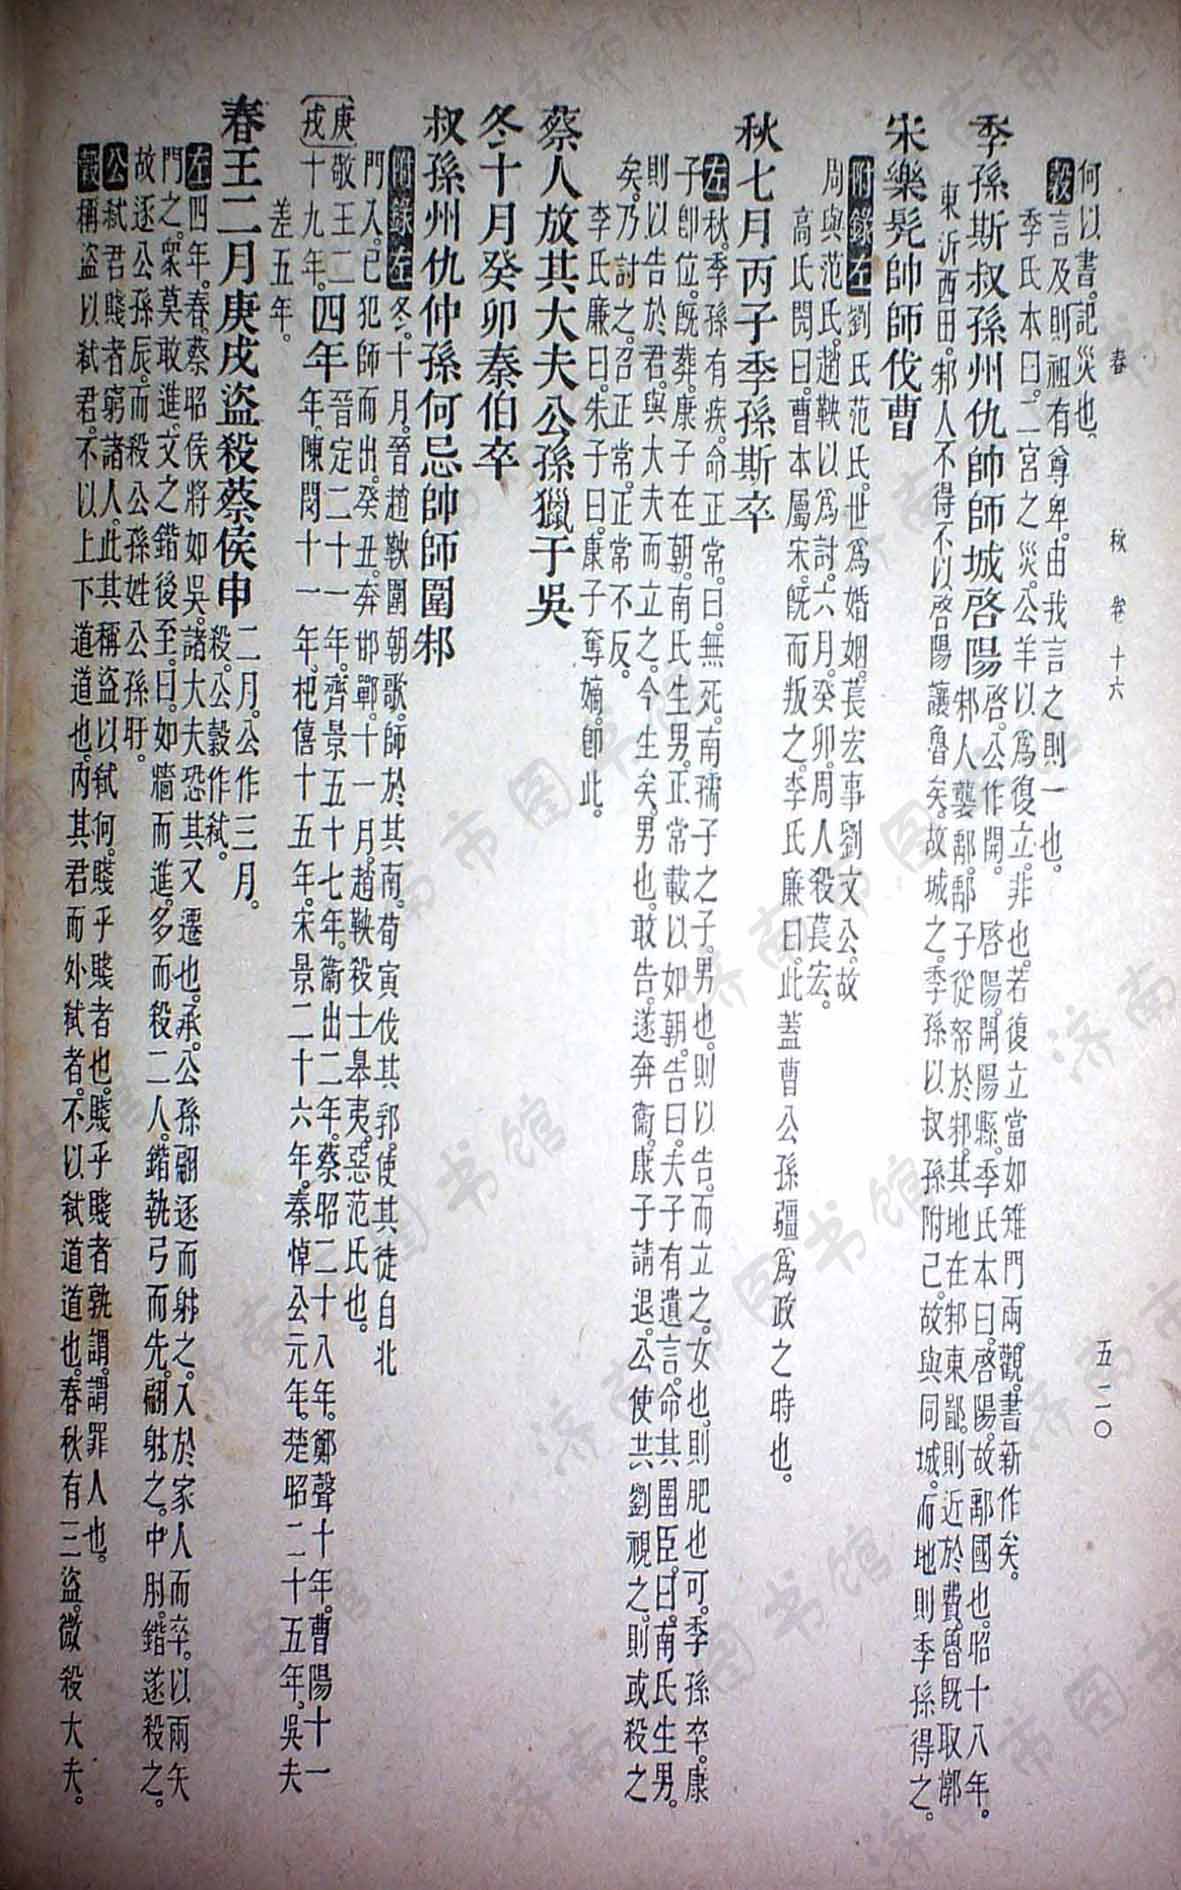 春　秋　卷十六　五二〇
何以書。記災也。
穀言及則祖有尊卑。由我言之則一也。
季氏本曰。二宮之災。公羊以爲復立。非也。若復立當如雉門兩觀。書新作矣。
季孫斯叔孫州仇帥師城啓陽啓。公作開。　啓陽。開陽縣。季氏本曰。啓陽。故鄅國也。昭十八年。
邾人襲鄅。鄅子從帑於邾。其地在邾東鄙。則近於費。魯旣取漷
東沂西田。邾人不得不以啓陽讓魯矣。故城之。季孫以叔孫附己。故與同城。而地則季孫得之。
宋樂髡帥師伐曹
附錄左劉氏范氏。世爲婚姻。萇宏事劉文公。故
周與范氏。趙鞅以爲討。六月。癸卯。周人殺萇宏。
高氏閌曰。曹本屬宋。旣而叛之。李氏廉曰。此蓋曹公孫疆爲政之時也。
秋七月丙子季孫斯卒
左秋。季孫有疾。命正常。曰。無死。南孺子之子。男也。則以告。而立之。女也。則肥也可。季孫卒。康
子卽位。旣葬。康子在朝。南氏生男。正常載以如朝。告曰。夫子有遺言。命其圉臣。曰。南氏生男。
則以告於君。與大夫而立之。今生矣。男也。敢告。遂奔衞。康子請退。公使共劉視之。則或殺之
矣。乃討之。召正常。正常不反。
李氏廉曰。朱子曰。康子奪嫡。卽此。
蔡人放其大夫公孫獵于吳
冬十月癸卯秦伯卒
叔孫州仇仲孫何忌帥師圍邾
附錄左冬。十月。晉趙鞅圍朝歌。師於其南。荀寅伐其郛。使其徒自北
門入。己犯師而出。癸丑。奔邯鄲。十一月。趙鞅殺士皋夷。惡范氏也。
庚戌　敬王二十九年。四年　晉定二十一年。齊景五十七年。衞出二年。蔡昭二十八年。鄭聲十年。曹陽十一
年。陳閔十一年。杞僖十五年。宋景二十六年。秦悼公元年。楚昭二十五年。吳夫
差五年。
春王二月庚戌盜殺蔡侯申二月。公作三月。
殺。公穀作弒。
左四年。春。蔡昭侯將如吳。諸大夫恐其又遷也。承。公孫翩逐而射之。入於家人而卒。以兩矢
門之。衆莫敢進。文之鍇後至。曰。如牆而進。多而殺二人。鍇執弓而先。翩射之。中肘。鍇遂殺之。
故逐公孫辰。而殺公孫姓公孫盱。
公弒君賤者窮諸人。此其稱盜以弒何。賤乎賤者也。賤乎賤者孰謂。謂罪人也。
穀稱盜以弒君。不以上下道道也。內其君而外弒者。不以弒道道也。春秋有三盜。微殺大夫。